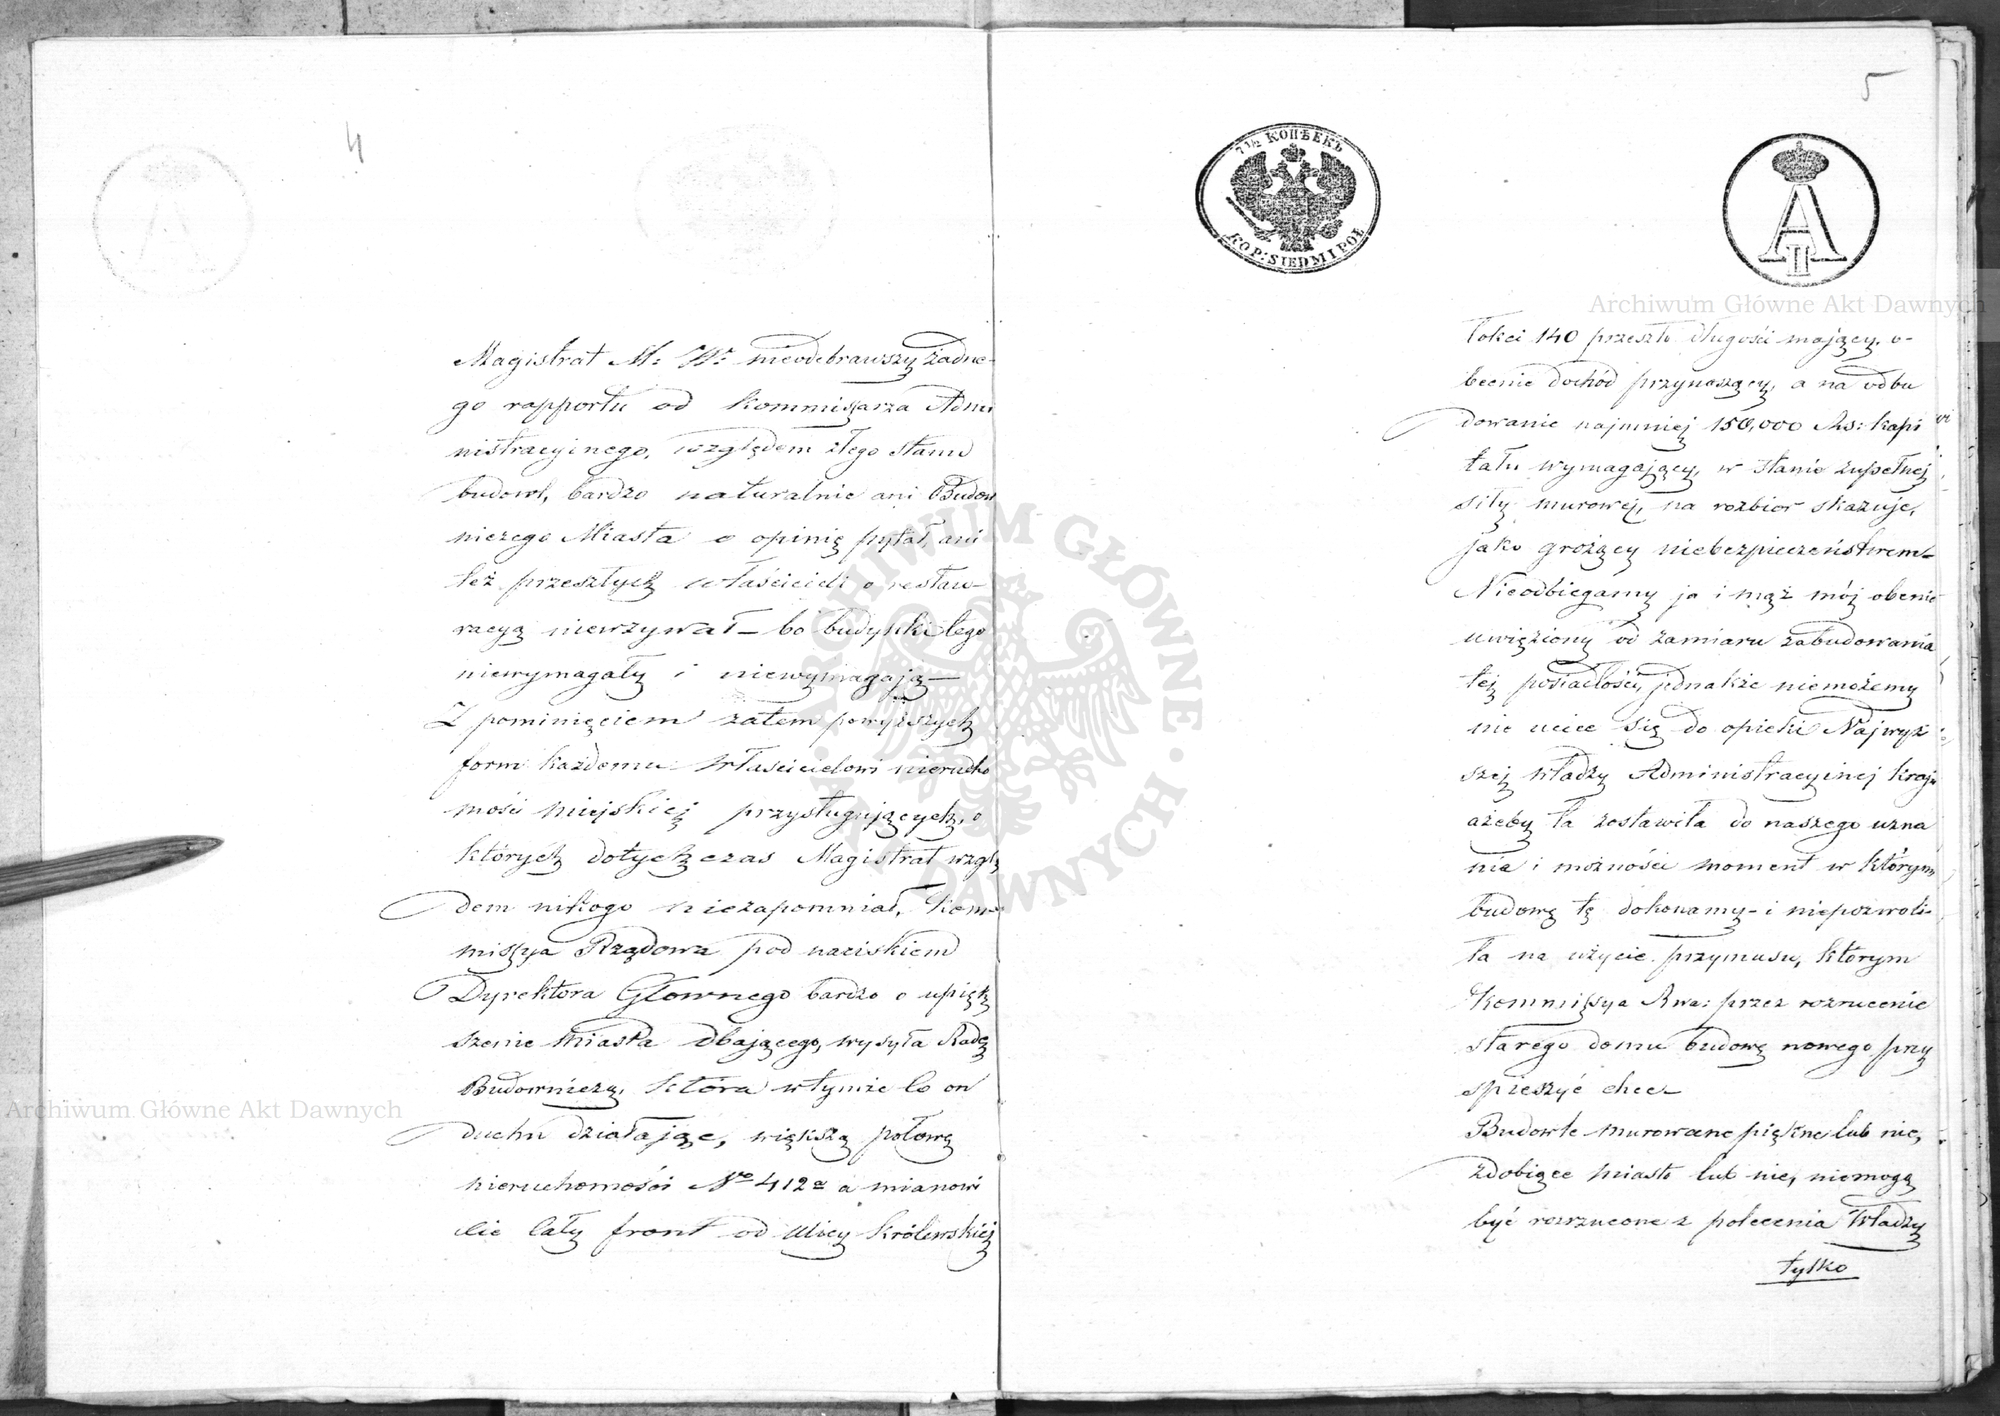 4
Magistrat M: W: nieodebrawszy żadne-
go rapportu od Kommissarza Admi
nistracyjnego, względem złego stanu
budowl, bardzo naturalnie ani Budow
niczego Miasta o opinię pytał, ani
też przeszłych właścicieli o restau-
racyą niewzywał – bo budynki tego
niewymagały i niewymagają –
Z pominięciem zatem powyższych
form każdemu właścicielowi nierucho
mości miejskiej przysługujących, o
których dotychczas Magistrat wzglę
dem nikogo niezapomniał, Kom-
missya Rządowa pod naciskiem
Dyrektora Głownego bardzo o upięk
szenie miasta dbającego, wysyła Radę
Budowniczą, która w tymże co on
duchu działając, większą połowę
nieruchomości Nro 412a a mianowi
cie cały front od ulicy Królewskiej
5
7 1/2 КОПѢЕКЪ
KOP: SIEDM I POŁ
A II
Archiwum Główne Akt Dawnych
łokci 140 przeszło długości mający, o-
becnie dochód przynoszący, a na odbu
dowanie najmniej 150,000 Rs: kapi
tału wymagający, w stanie zupełnej
siły murowej, na rozbiór skazuje,
jako grożący niebezpieczeństwem –
Nieodbiegamy ja i mąż mój obecnie
uwięziony od zamiaru zabudowania
tej posiadłości, jednakże niemożemy
nie uciec się do opieki Najwyż
szej władzy Administracyjnej kraju
ażeby ta zostawiła do naszego uzna
nia i możności moment w którym
budowę tę dokonamy – i niepozwoli-
ła na użycie przymusu, którym
Kommissya Rwa: przez rozrucenie
starego domu budowę nowego przy
spieszyć chce –
Budowle murowane piękne lub nie,
zdobiące miasto lub nie, niemogą
być rozrzucone z polecenia Władzy
tylko
Archiwum Główne Akt Dawnych
ARCHIWUM GŁÓWNE AKT DAWNYCH